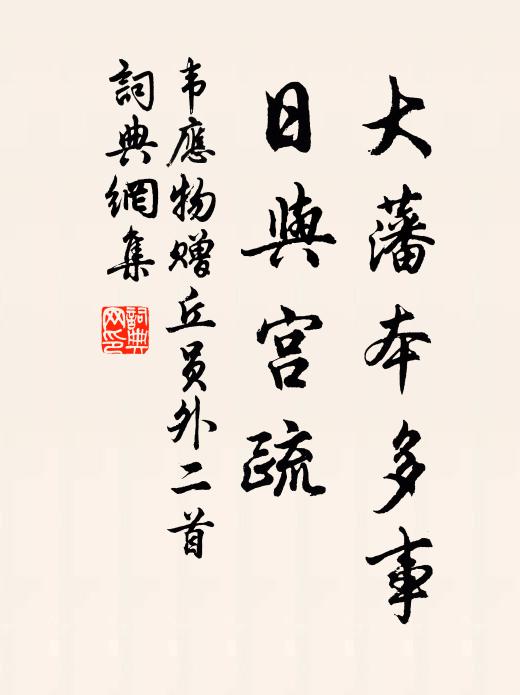 大藩本多事
日與宫疏
韦應物赠丘员外二首
詞典網集
詞典网印